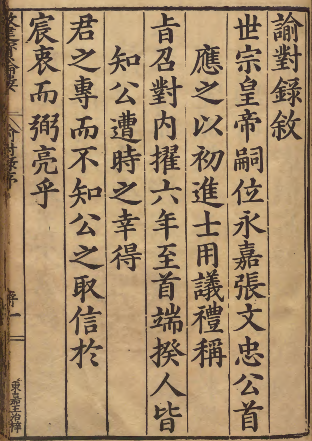 諭對錄敘
世宗皇帝嗣位永嘉張文忠公首
應之以初進士用議禮稱
旨召對內擢六年至首端揆人皆
知公遭時之幸得
君之專而不知公之取信於
宸衷而弼亮乎
序一
東嘉王治梓